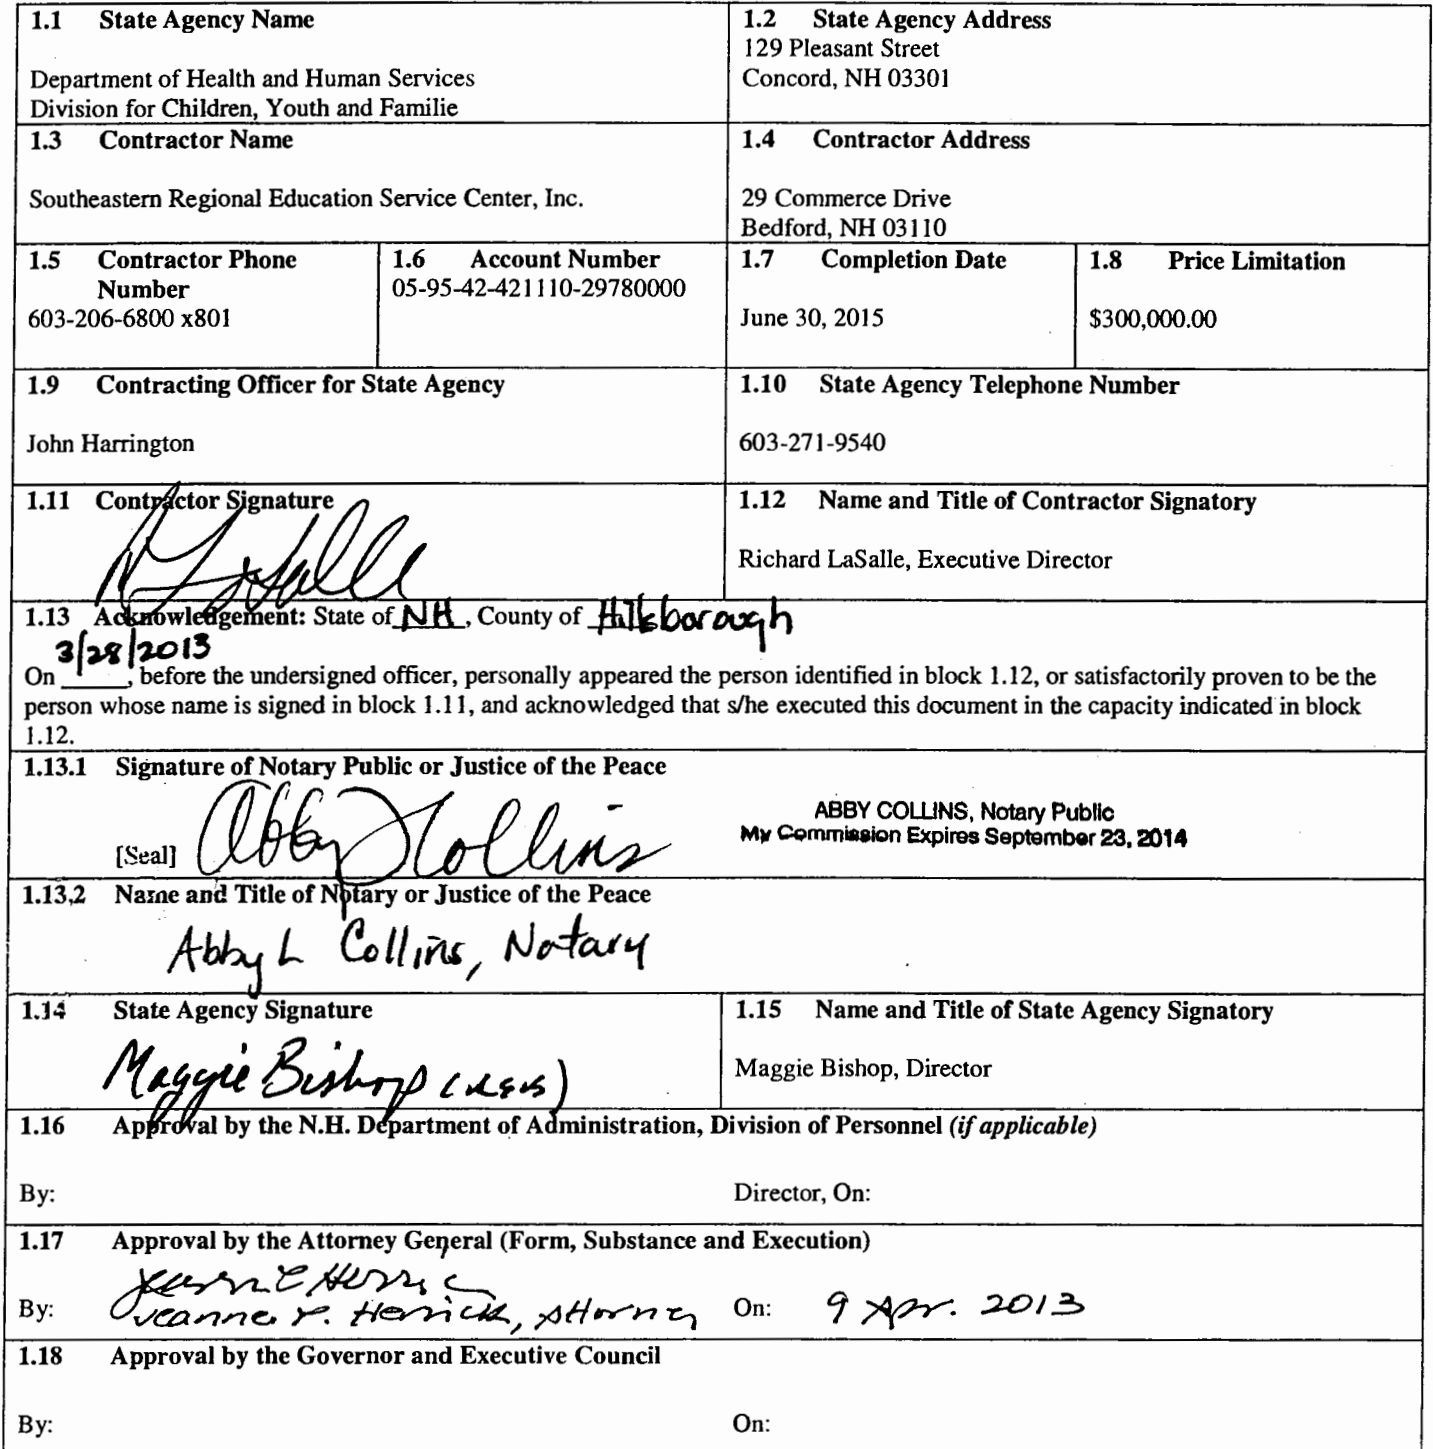 1.1 State Agency Name
Department of Health and Human Services
Division for Children, Youth and Familie
1.2 State Agency Address
129 Pleasant Street
Concord, NH 03301
1.3 Contractor Name
Southeastern Regional Education Service Center, Inc.
1.4 Contractor Address
29 Commerce Drive
Bedford, NH 03110
1.5 Contractor Phone
Number
603-206-6800 x801
1.6 Account Number
05-95-42-421110-29780000
1.7 Completion Date
June 30, 2015
1.8 Price Limitation
$300,000.00
1.9 Contracting Officer for State Agency
John Harrington
1.10 State Agency Telephone Number
603-271-9540
1.11 Contractor Signature
1.12 Name and Title of Contractor Signatory
Richard LaSalle, Executive Director
1.13 Acknowledgement: State of NH, County of Hillsborough
3/28/2013
On ____, before the undersigned officer, personally appeared the person identified in block 1.12, or satisfactorily proven to be the
person whose name is signed in block 1.11, and acknowledged that s/he executed this document in the capacity indicated in block
1.12.
1.13.1 Signature of Notary Public or Justice of the Peace
[Seal] Abby L Collins
ABBY COLLINS, Notary Public
My Commission Expires September 23, 2014
1.13.2 Name and Title of Notary or Justice of the Peace
Abby L Collins, Notary
1.14 State Agency Signature
Maggie Bishop
1.15 Name and Title of State Agency Signatory
Maggie Bishop, Director
1.16 Approval by the N.H. Department of Administration, Division of Personnel (if applicable)
By: Director, On:
1.17 Approval by the Attorney General (Form, Substance and Execution)
By: Jeanne P. Herrick, Attorney On: 9 Apr. 2013
1.18 Approval by the Governor and Executive Council
By: On: